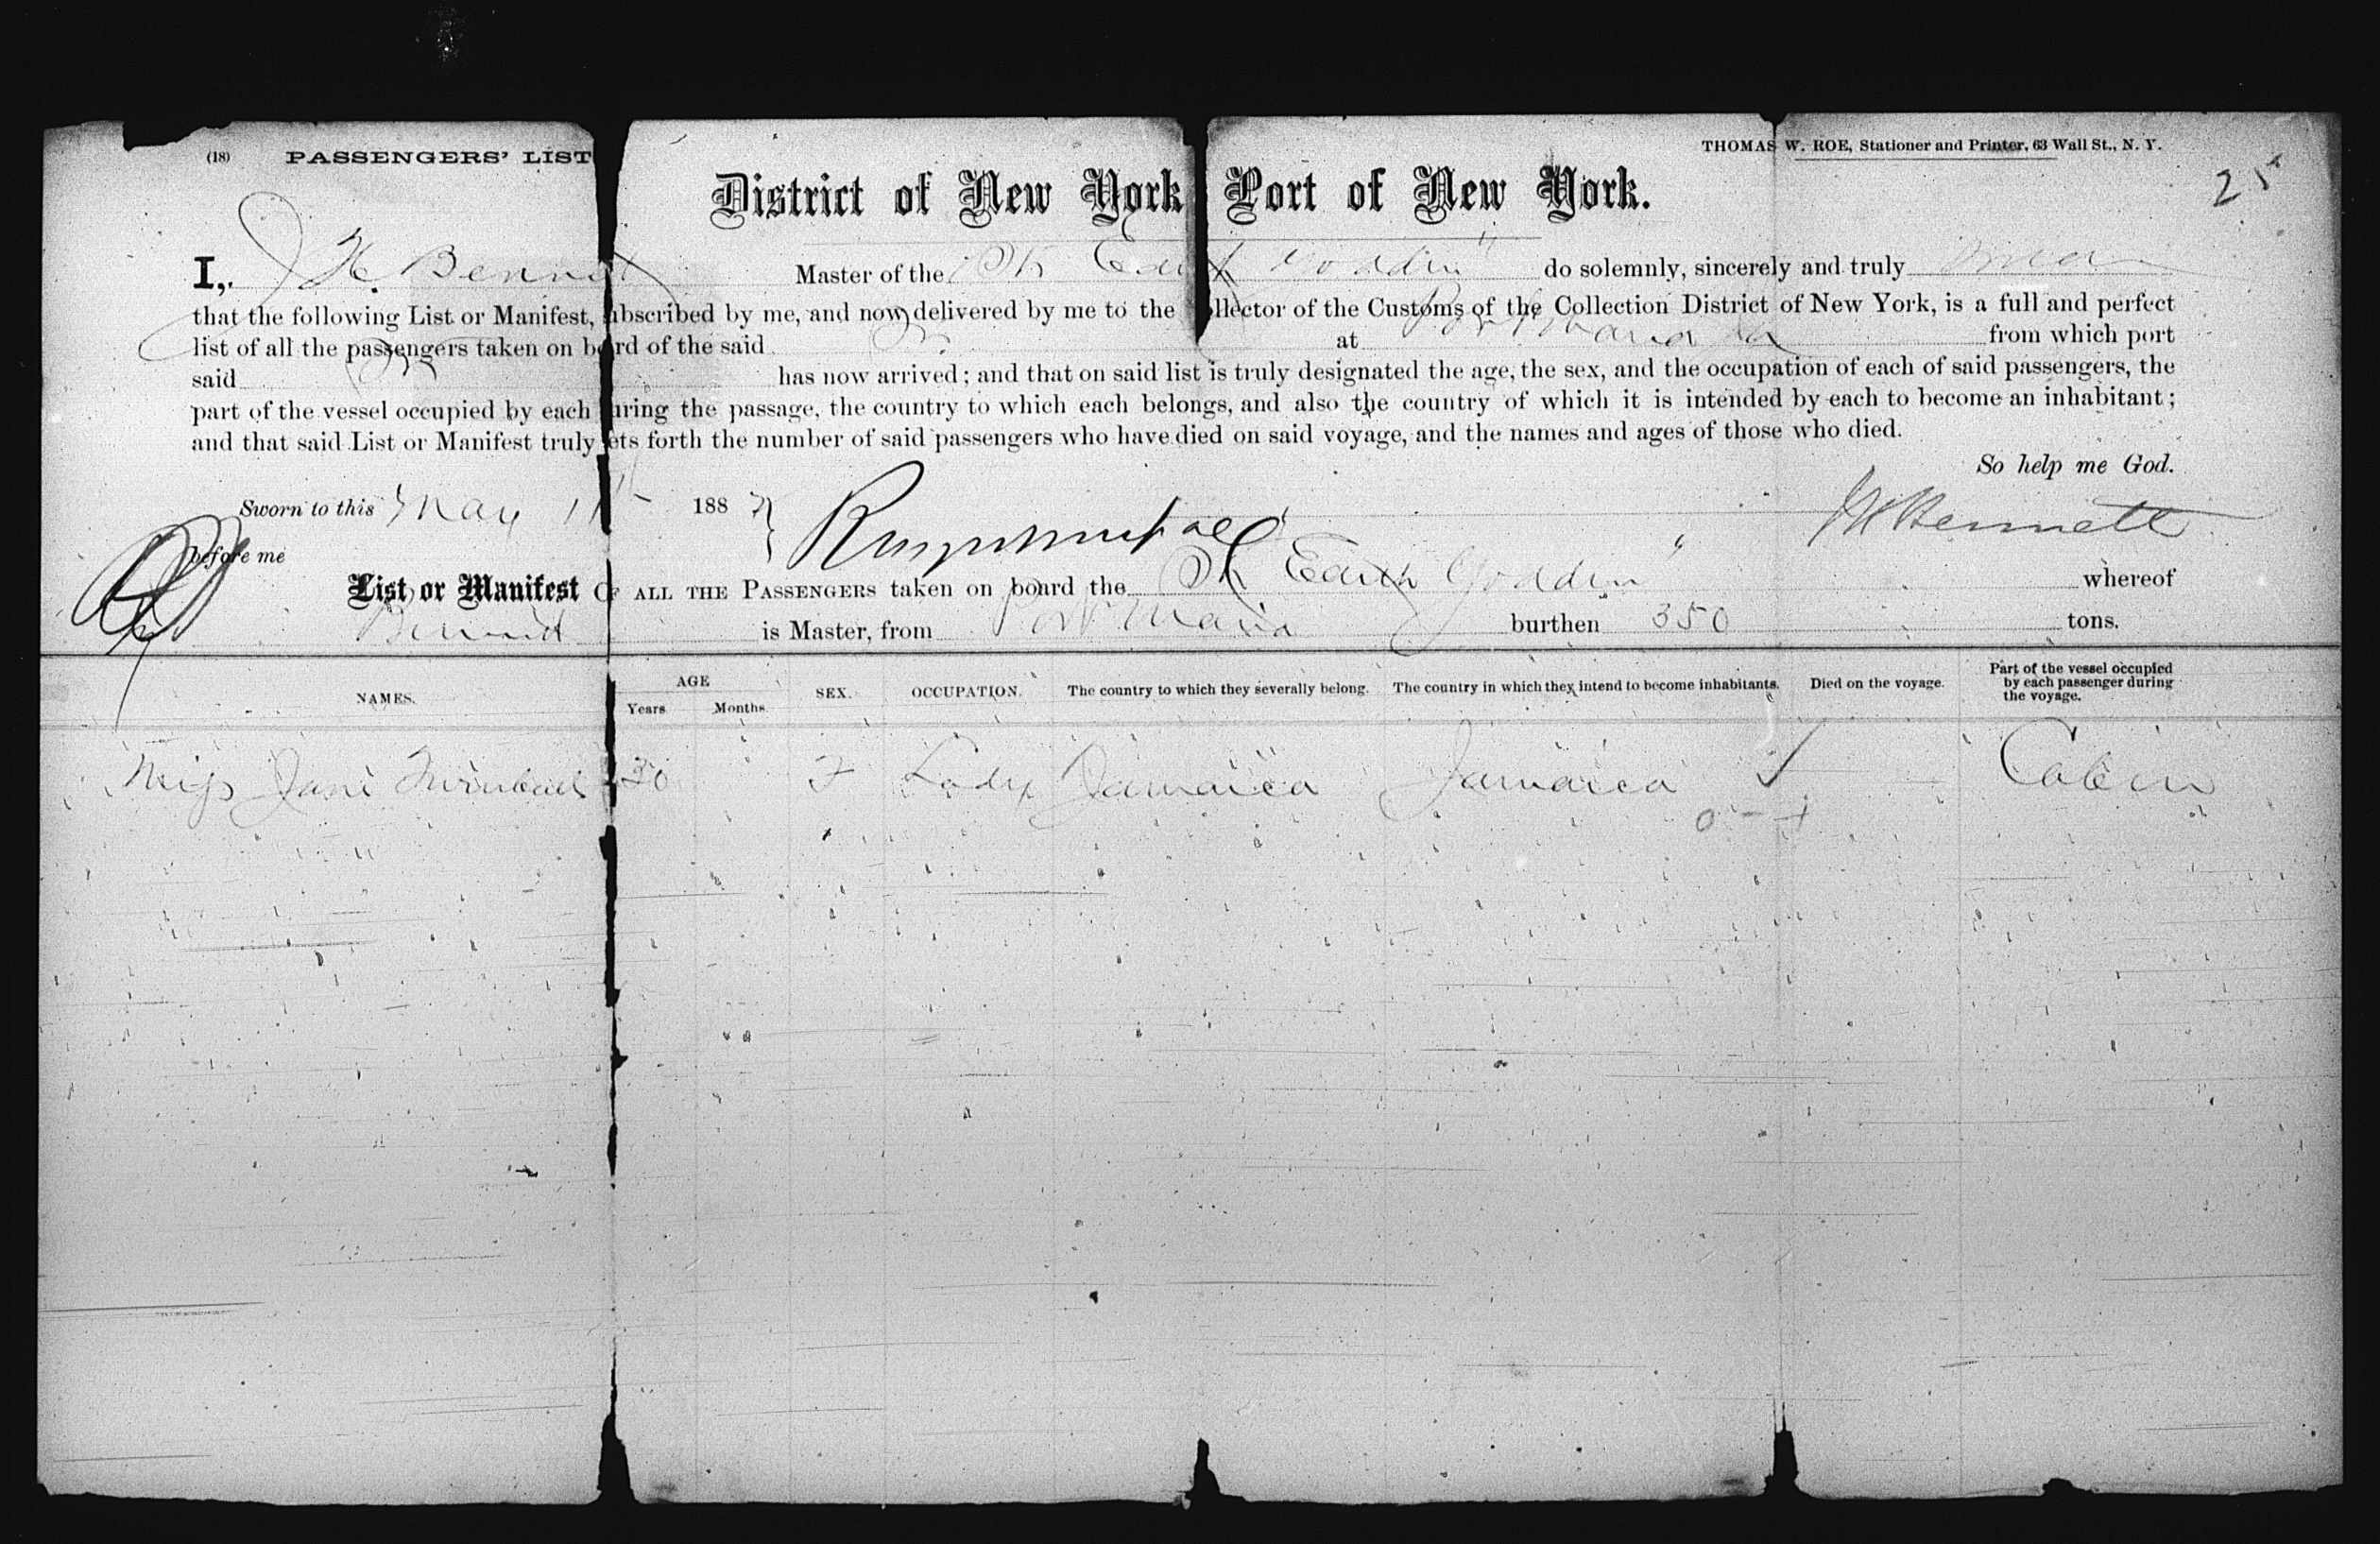 (18) PASSENGERS' LIST
THOMAS W. ROE, Stationer and Printer, 63 Wall St., N. Y.
25
District of New York Port of New York.
I, J H Bennett Master of the Sh Edith Godden do solemnly, sincerely and truly swear
that the following List or Manifest, ubscribed by me, and now delivered by me to the ollector of the Customs of the Collection District of New York, is a full and perfect
list of all the passengers taken on board of the said at Port Maria Ja from which port
said has now arrived; and that on said list is truly designated the age, the sex, and the occupation of each of said passengers, the
part of the vessel occupied by each uring the passage, the country to which each belongs, and also the country of which it is intended by each to become an inhabitant;
and that said List or Manifest truly ets forth the number of said passengers who have died on said voyage, and the names and ages of those who died.
So help me God.
Sworn to this May 11th 1887
JH Bennett
before me
List or Manifest OF ALL THE PASSENGERS taken on board the Sh Edith Godden whereof
Bennett is Master, from Port Maria burthen 350 tons.
NAMES. AGE Years Months SEX. OCCUPATION. The country to which they severally belong. The country in which they intend to become inhabitants. Died on the voyage. Part of the vessel occupied by each passenger during the voyage.
Miss Jane 30 F Lady Jamaica Jamaica Cabin